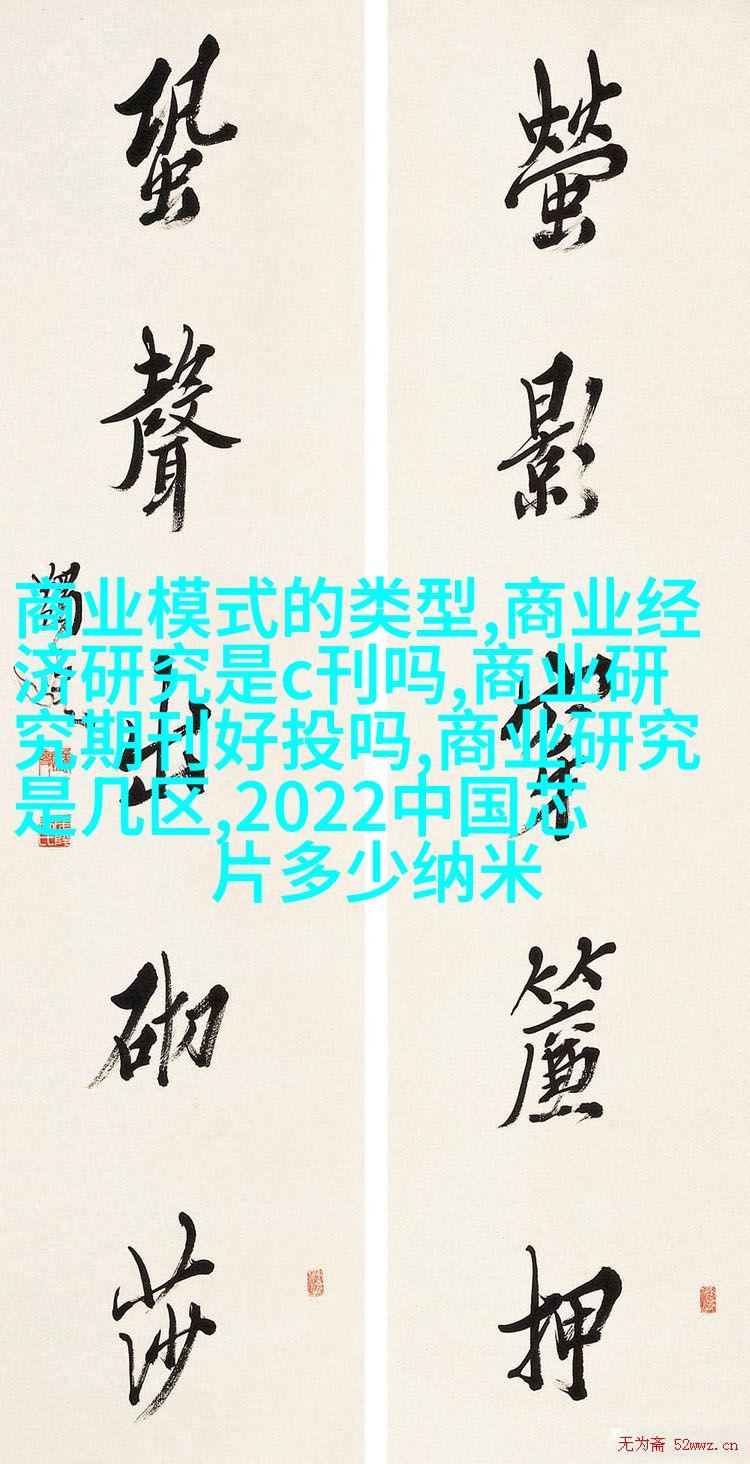 螢影穿簾押
蛩聲出砌莎
商业模式的类型,商业经
济研究是c刊吗,商业研
究期刊好投吗,商业研究
是几区,2022中国芯
片多少纳米
无为斋 52wwz.cn